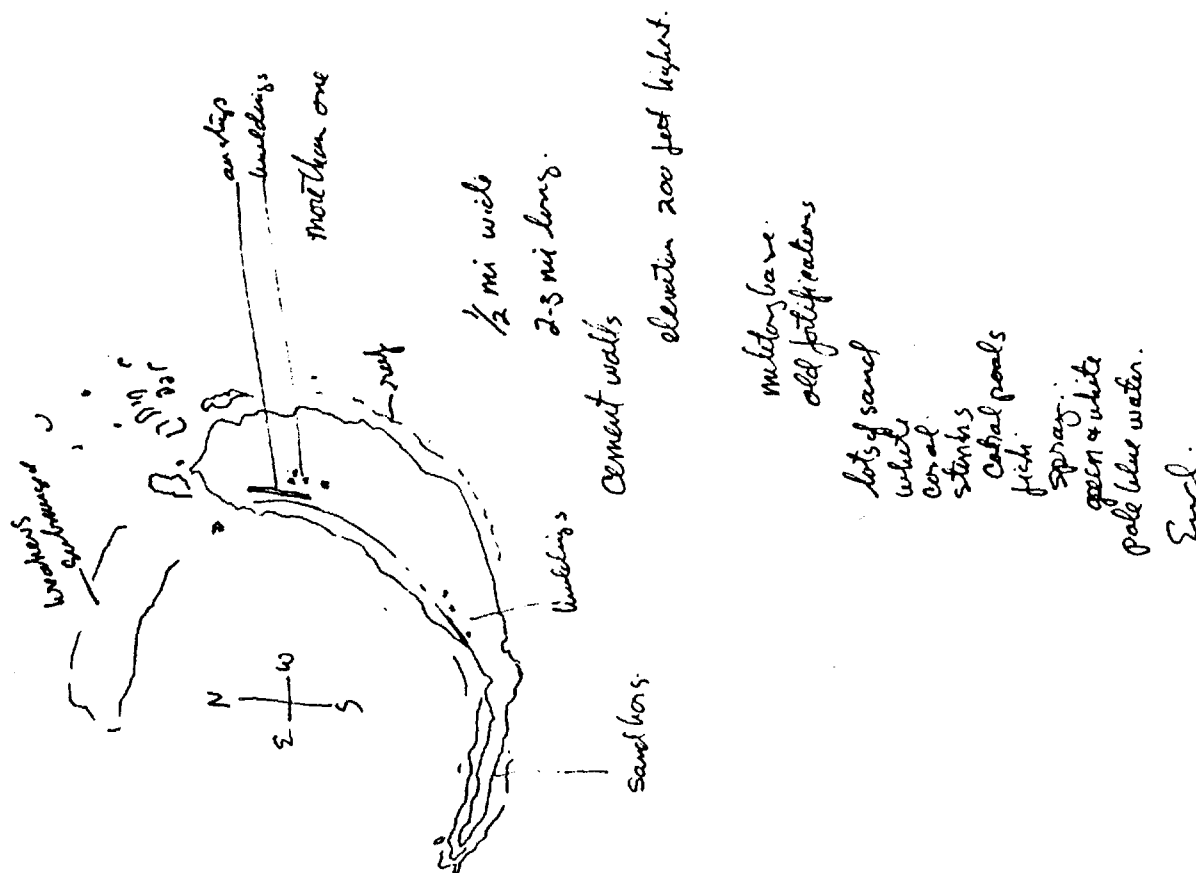 breakers
submerged
airstrip
buildings
more than one
reef
N
E
W
S
buildings
sand
1/2 mi wide
2-3 mi long.
cement walls
elevation 200 feet highest.
military base.
old fortifications
lots of sand
white
coral
stinks
coral pools
fish
spray.
green & white
pale blue water.
End.